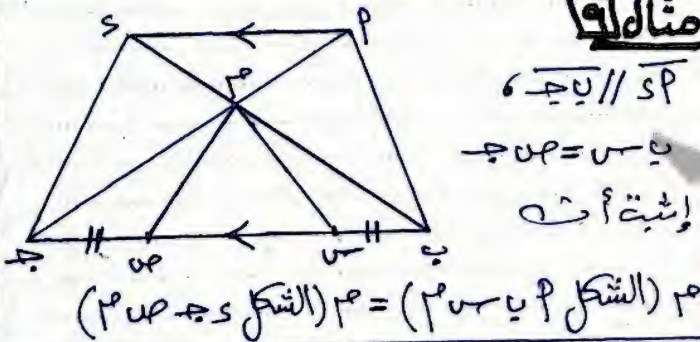 مثال (٩)
أ د // ب جـ ،
ب س = ص جـ
إثبت أن
م (الشكل أ ب س م) = م (الشكل د جـ ص م)
د
أ
م
جـ
ص
س
ب